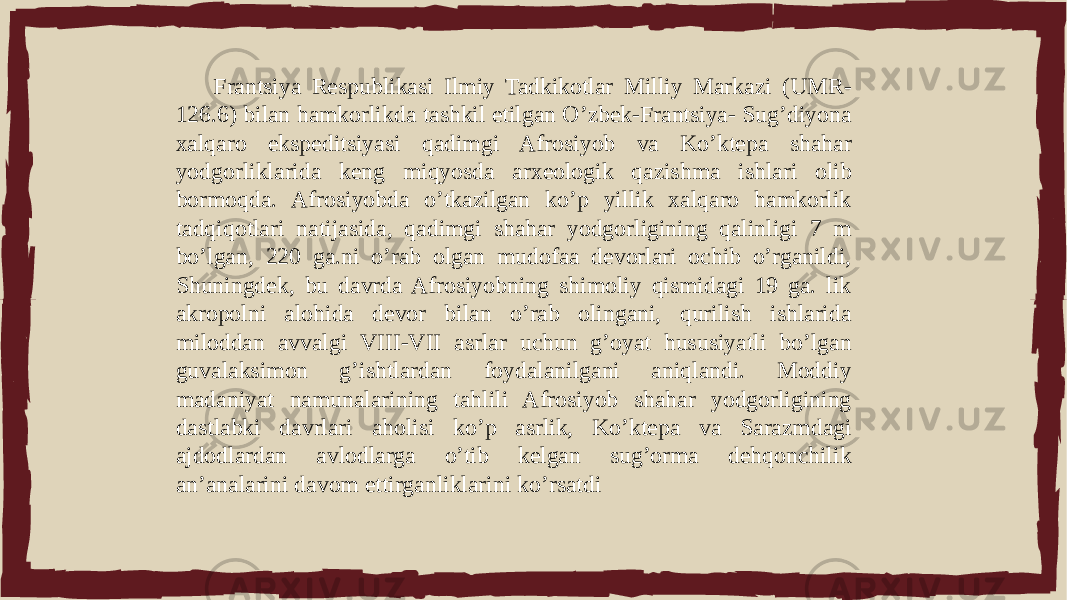 Frantsiya Respublikasi Ilmiy Tadkikotlar Milliy Markazi (UMR-
126.6) bilan hamkorlikda tashkil etilgan O’zbek-Frantsiya- Sug’diyona
xalqaro ekspeditsiyasi qadimgi Afrosiyob va Ko’ktepa shahar
yodgorliklarida keng miqyosda arxeologik qazishma ishlari olib
bormoqda. Afrosiyobda o’tkazilgan ko’p yillik xalqaro hamkorlik
tadqiqotlari natijasida, qadimgi shahar yodgorligining qalinligi 7 m
bo’lgan, 220 ga.ni o’rab olgan mudofaa devorlari ochib o’rganildi,
Shuningdek, bu davrda Afrosiyobning shimoliy qismidagi 19 ga. lik
akropolni alohida devor bilan o’rab olingani, qurilish ishlarida
miloddan avvalgi VIII-VII asrlar uchun g’oyat hususiyatli bo’lgan
guvalaksimon g’ishtlardan foydalanilgani aniqlandi. Moddiy
madaniyat namunalarining tahlili Afrosiyob shahar yodgorligining
dastlabki davrlari aholisi ko’p asrlik, Ko’ktepa va Sarazmdagi
ajdodlardan avlodlarga o’tib kelgan sug’orma dehqonchilik
an’analarini davom ettirganliklarini ko’rsatdi
ARXIV.UZ
ARXIV.UZ
ARXIV.UZ
ARXIV.UZ
ARXIV.UZ
ARXIV.UZ
ARXIV.UZ
ARXIV.UZ